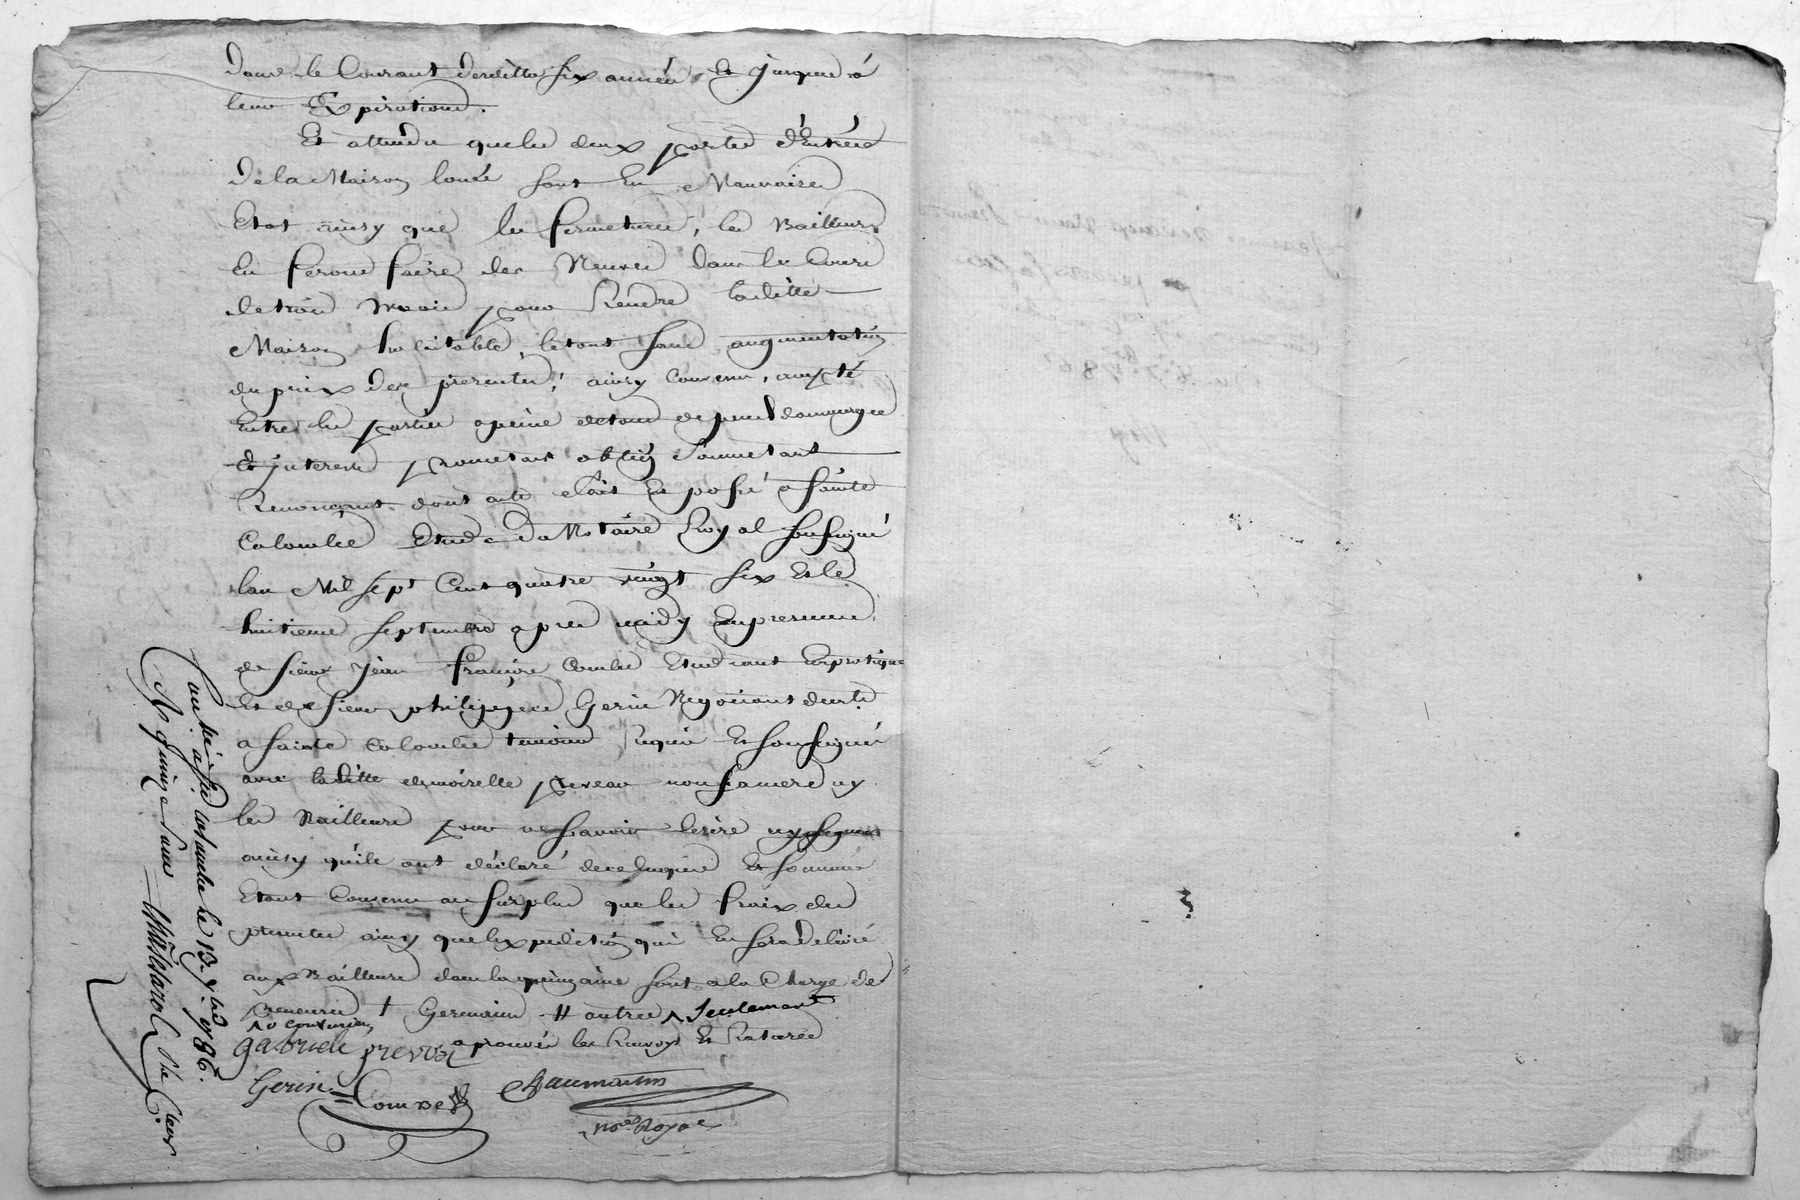 dans le Courant desdittes six années Et jusques à
leur Expiration.
Et attendu que les deux portes d'Entrée
de la Maison louée sont En Mauvaises
Etat ainsy que les fermetures, les Bailleurs
En feront faire des Neuves dans le Cours
de trois mois pour Rendre laditte
Maison habitable, le tout sans augmentation
du prix des presentes, ainsy Convenu, accepté
Entre les parties a peine de tous depens dommages
Et interests promettant obligé Soumettant
Renonçant dont acte fait Et passé a sainte
Colombe Etude du Notaire Royal soussigné
lan Mil sept Cent quatre vingt six Et le
huitieme septembre apres midy En presence
de sieur Jean François Combe Etudiant En pratique
Et de sieur philippe Gerin Negociant demt
a sainte Colombe temoins requis Et soussignés
avec laditte demoiselle non sa mere ny
les Bailleurs pour ne savoir Ecrire ny signer
ainsy qu'ils ont déclaré de ce Enquis Et sommés
Etant Convenu au surplus que les fraix des
presentes ainsy que l'expedition qui En sera delivré
aux Bailleurs dans la quinzaine sont a la Charge de
preneuses † Germain # autres ^ seulement
^ v approuvés les Renvoys Et Ratures
gabriele prevost
Gerin Combe Chaumartin
no.re Royal
Controllé a Ste Colombe le 13. 7bre 1786.
Rç quinze sous